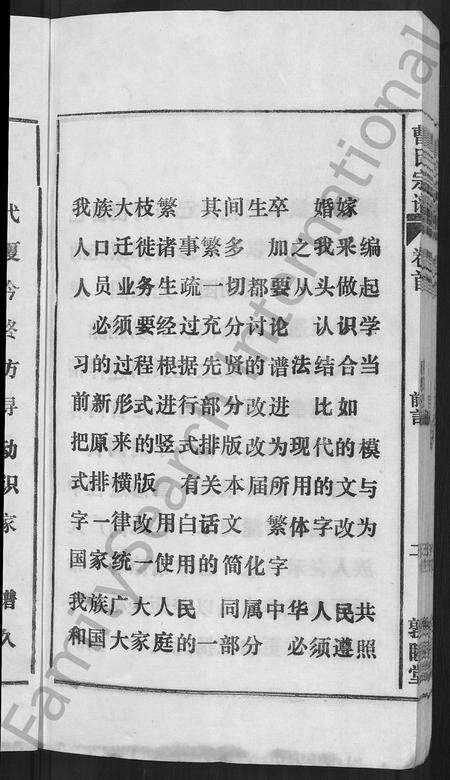 我族大枝繁 其间生卒 婚嫁
人口迁徙诸事繁多 加之我釆编
人员业务生疏一切都要从头做起
必须要经过充分讨论 认识学
习的过程根据先贤的谱法结合当
前新形式进行部分改进 比如
把原来的竖式排版改为现代的模
式排横版 有关本届所用的文与
字一律改用白话文 繁体字改为
国家统一使用的简化字
我族广大人民 同属中华人民共
和国大家庭的一部分 必须遵照
曹氏宗谱
卷首
二
敦睦堂
FamilySearch International